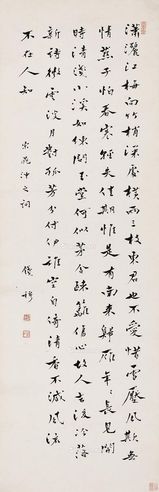 瀟灑江梅向竹梢深處橫兩三枝東君也不愛惜雪壓風欺無
情燕子怕春寒輕失佳期惟是有南來歸雁年年長見開
時清淺小溪如練問玉堂何似茅舍疏籬傷心故人去後冷落
新詩微雲淡月對孤芳分付伊誰空自倚清香不減風流
不在人知
沖之詞
錢穆